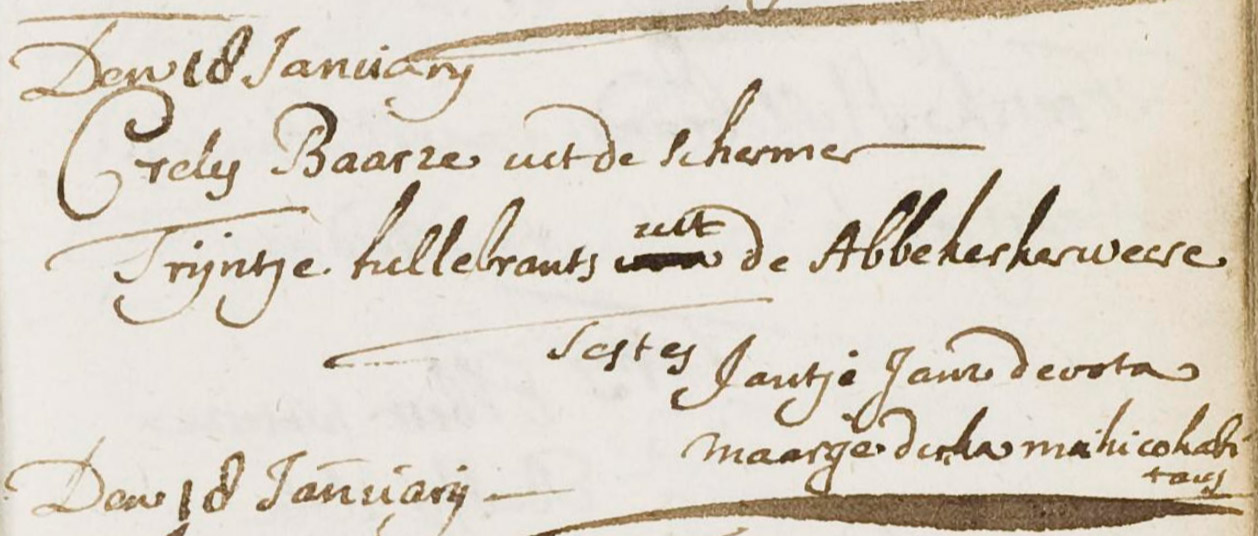 Den 18 January
Crelys Baarze uit de schermer
Trijntje hillebrants uit de Abbekerkerweere
testes Jantje Jans devota
maartje dirks mihi cohabi
tans
Den 18 January